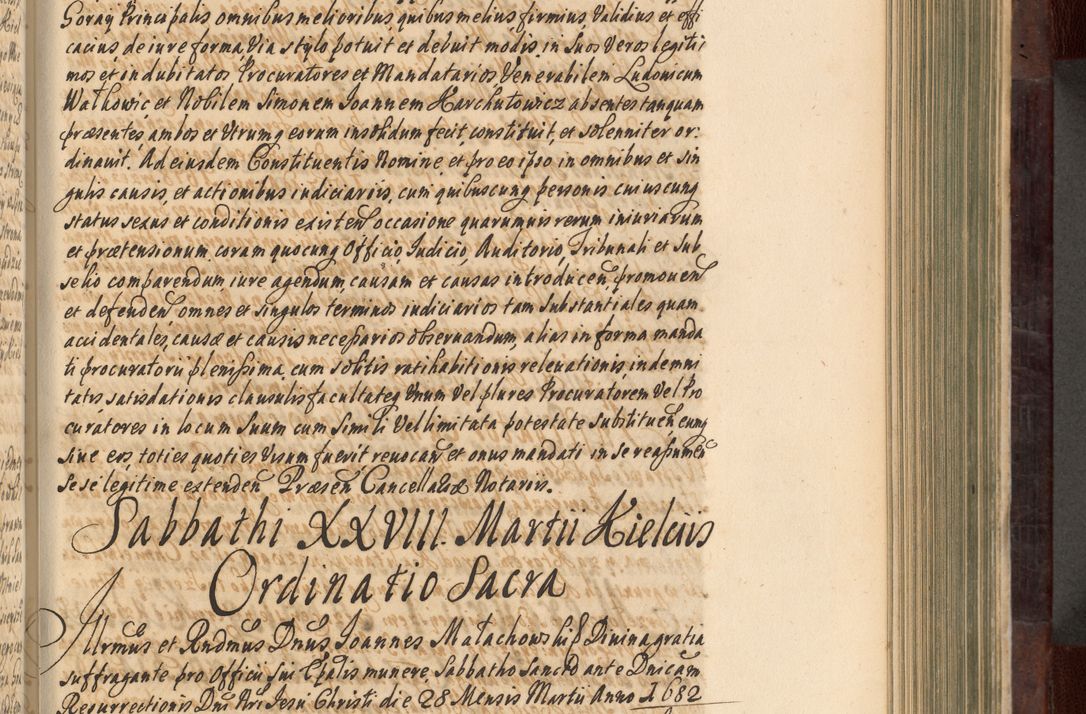 Goray Principalis omnibus melioribus quibus melius firmius, Validius et effi
cacius de iure forma Via stylo potuit et debuit modis in Suos Veros legiti
mos et indubitatos Procuratores et Mandatarios Venerabilem Ludovicum
Wathowic et Nobilem Simonem Joannem Harchutowicz absentes tanquam
præsentes ambos et Utrumq eorum insolidum fecit, constituit, et solenniter or:
dinauit. Ad eiusdem Constituentis Nomine et pro eo ipso in omnibus et Sin
gulis causis, et actionibus iudiciariis, cum quibuscunq personis cuiuscunq
status sexus et conditionis existeñ occasione quarumuis rerum iniuriarum
et prætensionum, coram quocunq Officio, Judicio, Auditorio, Tribunali et Sub
selio comparendum, iure agendum, causam et causas introduceñ promoueñ
et defendeñ omnes et singulos terminos iudiciarios tam Substantiales quam
accidentales, causæ et causis necessarios obseruandum, alias in forma manda
ti procuratorii plenissima, cum solitis ratihabitionis releuationis, indemni
tatis, satisdationis clausulis facultateq Unum Vel plures Procuratorem Vel Pro
curatores in locum Suum cum Simili Vel limitata potestate substitueñ eumq
siue eos, toties quoties Visum fuerit reuocañ et onus mandati in se reassumeñ
se se legitime extendeñ Præseñ Cancellariæ Notariis.
Sabbathi XXVIII. Martii Kielciis
Ordinatio Sacra
Illrmus et Rndmus Dnus Joannes Małachowski Divina gratia
suffragante pro Officii sui Epalis munere, Sabbatho Sancto ante Dnicam
Resurrectionis Dni Nri Jesu Christi die 28 Mensis Martii Anno 1682